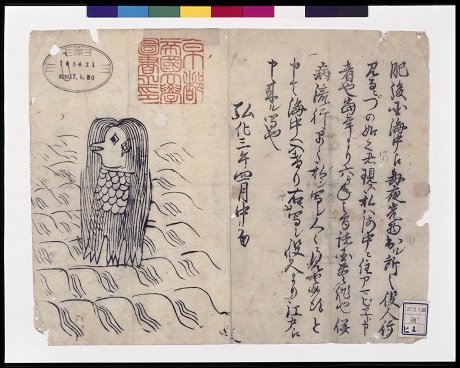 肥後国海中江毎夜光物出ル所之役人行
見るニづの如く者現ス私ハ海中ニ住アマビヱト申
者也当年より六ヶ年之間諸国豊作也併
病流行早々私ヲ写シ人々ニ見せ候得と
申て海中へ入けり右写シ役人より江戸江
申来ル写也
弘化三年四月中旬
京都帝國大學圖書之印
185421